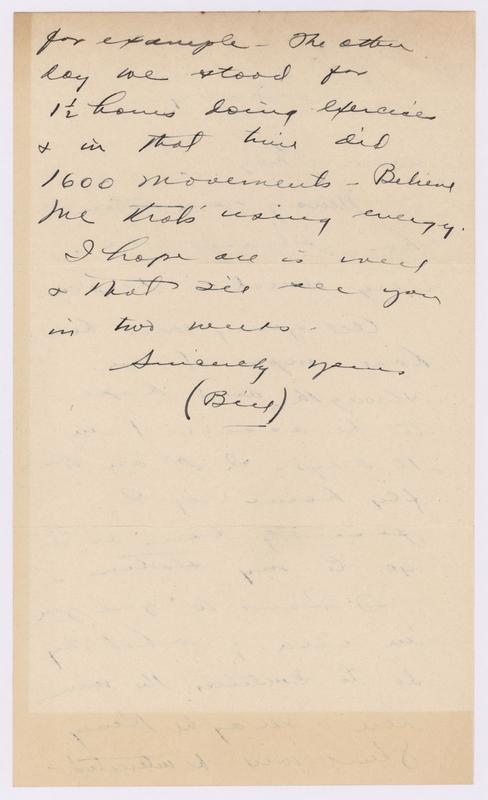 for example - The other
day we stood for
1½ hours doing exercises
& in that time did
1600 movements - Believe
me that's using energy.
I hope all is well
& that I'll see you
in two weeks -
Sincerely yours
(Bill)